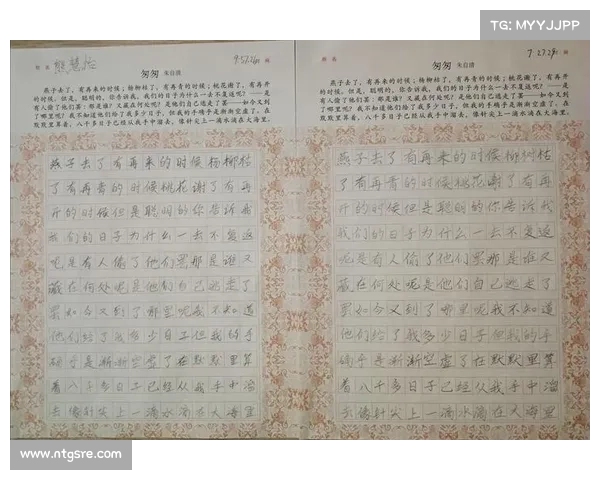 TG: MYYJJPP
姓名 熊慧玲
9.5.7.29
匆匆 朱自清
燕子去了，有再来的时候；杨柳枯了，有再青的时候；桃花谢了，有再开
的时候。但是，聪明的，你告诉我，我们的日子为什么一去不复返呢？——是
有人偷了他们罢：那是谁？又藏在何处呢？是他们自己逃走了罢——如今又到
了哪里呢？我不知道他们给了我多少日子；但我的手确乎是渐渐空虚了。在
默默里算着，八千多日子已经从我手中溜去；像针尖上一滴水滴在大海里，
燕子去了有再来的时候杨柳枯
了有再青的时候桃花谢了有再
开的时候但是聪明的你告诉我
我们的日子为什么一去不复返
呢是有人偷了他们罢那是谁又
藏在何处呢是他们自己逃走了
罢如今又到了哪里呢我不知道
他们给了我多少日子但我的手
确乎是渐渐空虚了在默默里算
着八千多日子已经从我手中溜
去像针尖上一滴水滴在大海里
姓名
9.27.29
匆匆 朱自清
燕子去了，有再来的时候；杨柳枯了，有再青的时候；桃花谢了，有再开
的时候。但是，聪明的，你告诉我，我们的日子为什么一去不复返呢？——是
有人偷了他们罢：那是谁？又藏在何处呢？是他们自己逃走了罢——如今又到
了哪里呢？我不知道他们给了我多少日子；但我的手确乎是渐渐空虚了。在
默默里算着，八千多日子已经从我手中溜去；像针尖上一滴水滴在大海里，
燕子去了有再来的时候杨柳枯
了有再青的时候桃花谢了有再
开的时候但是聪明的你告诉我
我们的日子为什么一去不复返
呢是有人偷了他们罢那是谁又
藏在何处呢是他们自己逃走了
罢如今又到了哪里呢我不知道
他们给了我多少日子但我的手
确乎是渐渐空虚了在默默里算
着八千多日子已经从我手中溜
去像针尖上一滴水滴在大海里
www.ntgsre.com